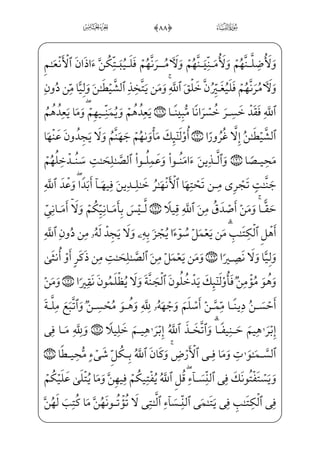 الجزء الخامس ﴿٨٨﴾ سورة النساء
وَلَأُضِلَّنَّهُمْ وَلَأُمَنِّيَنَّهُمْ وَلَآمُرَنَّهُمْ فَلَيُبَتِّكُنَّ ءَاذَانَ ٱلْأَنْعَٰمِ
وَلَآمُرَنَّهُمْ فَلَيُغَيِّرُنَّ خَلْقَ ٱللَّهِ ۚ وَمَن يَتَّخِذِ ٱلشَّيْطَٰنَ وَلِيًّا مِّن دُونِ
ٱللَّهِ فَقَدْ خَسِرَ خُسْرَانًا مُّبِينًا ﴿١١٩﴾ يَعِدُهُمْ وَيُمَنِّيهِمْ ۖ وَمَا يَعِدُهُمُ
ٱلشَّيْطَٰنُ إِلَّا غُرُورًا ﴿١٢٠﴾ أُو۟لَٰٓئِكَ مَأْوَىٰهُمْ جَهَنَّمُ وَلَا يَجِدُونَ عَنْهَا
مَحِيصًا ﴿١٢١﴾ وَٱلَّذِينَ ءَامَنُوا۟ وَعَمِلُوا۟ ٱلصَّٰلِحَٰتِ سَنُدْخِلُهُمْ
جَنَّٰتٍ تَجْرِى مِن تَحْتِهَا ٱلْأَنْهَٰرُ خَٰلِدِينَ فِيهَآ أَبَدًا ۖ وَعْدَ ٱللَّهِ
حَقًّا ۚ وَمَنْ أَصْدَقُ مِنَ ٱللَّهِ قِيلًا ﴿١٢٢﴾ لَّيْسَ بِأَمَانِيِّكُمْ وَلَآ أَمَانِىِّ
أَهْلِ ٱلْكِتَٰبِ ۗ مَن يَعْمَلْ سُوٓءًا يُجْزَ بِهِۦ وَلَا يَجِدْ لَهُۥ مِن دُونِ ٱللَّهِ
وَلِيًّا وَلَا نَصِيرًا ﴿١٢٣﴾ وَمَن يَعْمَلْ مِنَ ٱلصَّٰلِحَٰتِ مِن ذَكَرٍ أَوْ أُنثَىٰ
وَهُوَ مُؤْمِنٌ فَأُو۟لَٰٓئِكَ يَدْخُلُونَ ٱلْجَنَّةَ وَلَا يُظْلَمُونَ نَقِيرًا ﴿١٢٤﴾ وَمَنْ
أَحْسَنُ دِينًا مِّمَّنْ أَسْلَمَ وَجْهَهُۥ لِلَّهِ وَهُوَ مُحْسِنٌ وَٱتَّبَعَ مِلَّةَ
إِبْرَٰهِيمَ حَنِيفًا ۗ وَٱتَّخَذَ ٱللَّهُ إِبْرَٰهِيمَ خَلِيلًا ﴿١٢٥﴾ وَلِلَّهِ مَا فِى
ٱلسَّمَٰوَٰتِ وَمَا فِى ٱلْأَرْضِ ۚ وَكَانَ ٱللَّهُ بِكُلِّ شَىْءٍ مُّحِيطًا ﴿١٢٦﴾
وَيَسْتَفْتُونَكَ فِى ٱلنِّسَآءِ ۖ قُلِ ٱللَّهُ يُفْتِيكُمْ فِيهِنَّ وَمَا يُتْلَىٰ عَلَيْكُمْ
فِى ٱلْكِتَٰبِ فِى يَتَٰمَى ٱلنِّسَآءِ ٱلَّٰتِى لَا تُؤْتُونَهُنَّ مَا كُتِبَ لَهُنَّ